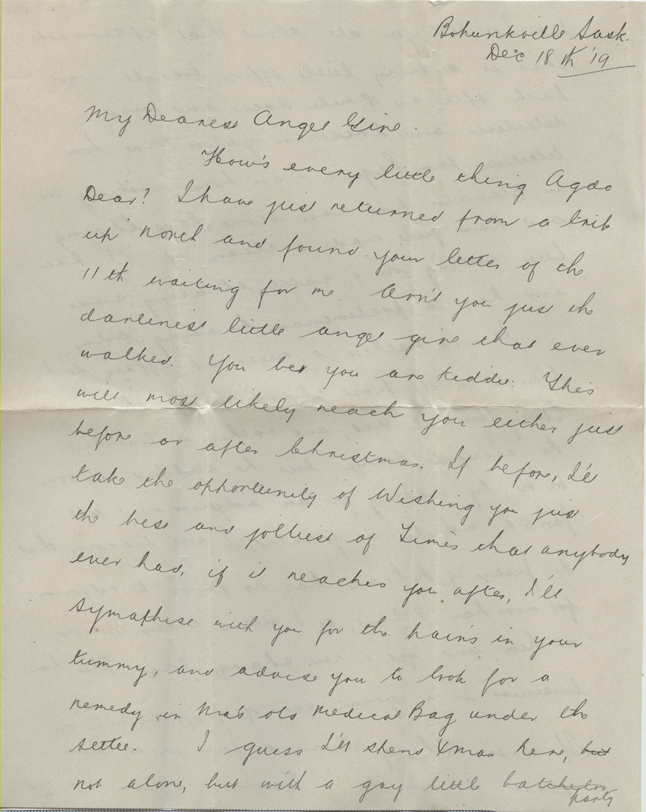 Bohunkville Sask.
Dec 18th '19
My Dearest Angel Girl.
How's every little thing Agde
Dear? I have just returned from a trip
up north and found your letter of the
11th waiting for me. Aren't you just the
darlinest little angel girl that ever
walked. You bet you are kiddie. This
will most likely reach you either just
before or after Christmas. If before, I'll
take the opportunity of Wishing you just
the best and jolliest of Times that anybody
ever had, if it reaches you after, I'll
symathise with you for the pains in your
tummy, and advise you to look for a
remedy in Ma's old Medical Bag under the
settee. I guess I'll spend Xmas here, but
not alone, but with a gay little batchelor
party